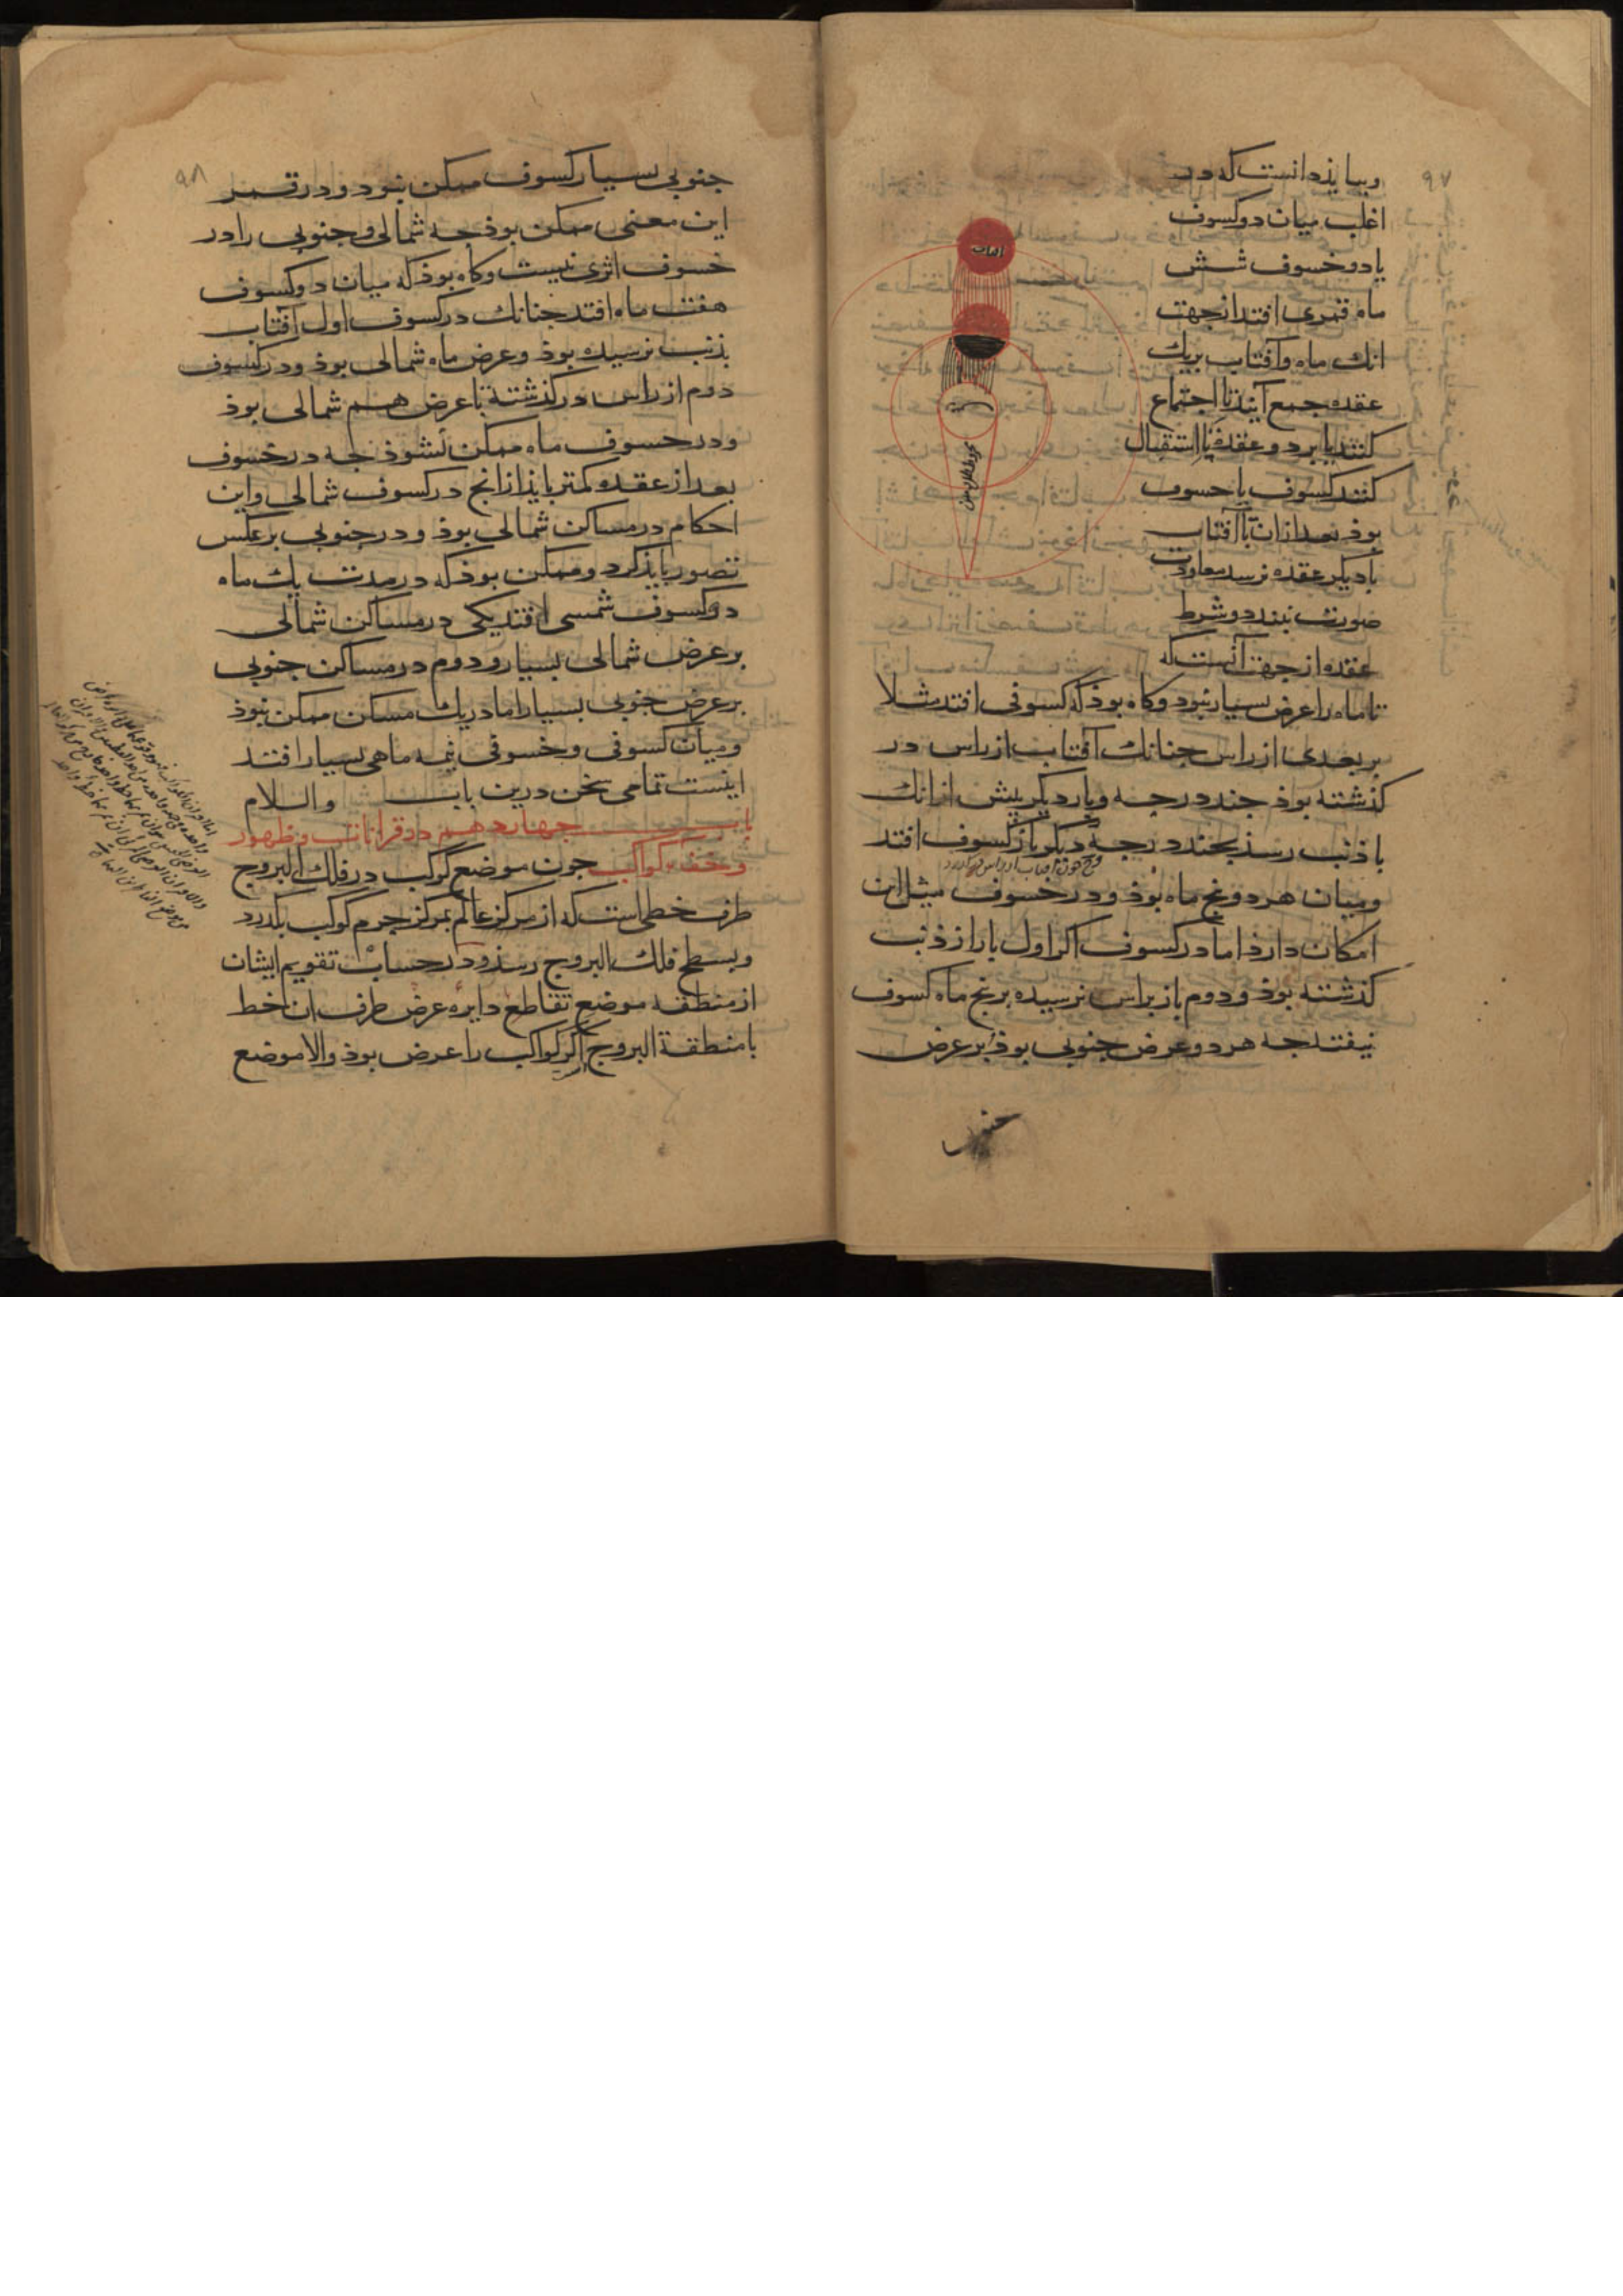 ۹۷
وببایذ دانست که در
اغلب میان دو کسوف
یا دو خسوف شش
ماه قمری افتد از جهت
انک ماه وآفتاب بریک
عقده جمع آیند تا اجتماع
کنند یا بر دو عقده تا استقبال
کنند کسوف یا خسوف
بوذ بعد ازان تا آفتاب
بادیکر عقده نرسد معاودت
صورت نبندد وشرط
عقده از جهت آنست که
تا ماه را عرض بسیار نبود وکاه بوذ که کسوفی افتد مثلا
بر بعدی از راس جنانک آفتاب از راس در
کذشته بوذ جند درجه وبار دیکر پیش ازانک
با ذنب رسذ بجند درجه دیکر باز کسوف افتد
ومیان هر دو پنج ماه بوذ ودر خسوف مثل این
امکان دارد اما در کسوف اکر اول بار از ذنب
کذشته بوذ ودوم باز براس نرسیده بر پنج ماه کسوف
نیفتد جه هر دو عرض جنوبی بوذ بر عرض
آفتاب
مخروط ظل زمین
جنوبی
۹۸
جنوبی بسیار کسوف ممکن نبود ودر قمر
این معنی ممکن بوذ جه شمالی وجنوبی را در
خسوف اثری نیست وکاه بوذ که میان دو کسوف
هفت ماه افتد جنانک در کسوف اول آفتاب
بذنب نرسیده بوذ وعرض ماه شمالی بوذ ودر کسوف
دوم از راس درکذشته تا عرض هم شمالی بوذ
ودر خسوف ماه ممکن نشوذ جه در خسوف
بعد از عقده کمتر بایذ ازانج در کسوف شمالی واین
احکام در مساکن شمالی بوذ ودر جنوبی بر عکس
تصور بایذ کرد وممکن بوذ که در مدت یک ماه
دو کسوف شمسی افتد یکی در مساکن شمالی
بر عرض شمالی بسیار ودوم در مساکن جنوبی
بر عرض جنوبی بسیار اما در یک مسکن ممکن نبوذ
ومیان کسوفی وخسوفی نیمه ماهی بسیار افتد
اینست تمامی سخن درین باب والسلام
باب جهاردهم در قرانات وظهور
وخفاء کواکب جون موضع کوکب در فلک البروج
طرف خطی است که از مرکز عالم بمرکز جرم کوکب بکذرد
وبسطح فلک البروج رسذ ودر حساب تقویم ایشان
از منطقه موضع تقاطع دایره عرض طرف ان خط
با منطقة البروج اکر کواکب را عرض بوذ والا موضع